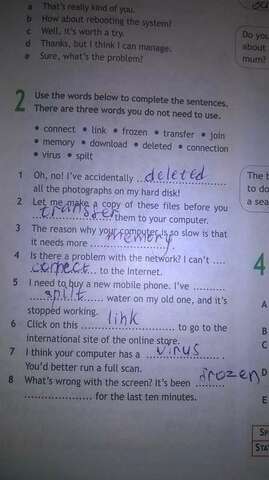 a That's really kind of you.
b How about rebooting the system?
c Well, it's worth a try.
d Thanks, but I think I can manage.
e Sure, what's the problem?
Do you
about
mum?
2 Use the words below to complete the sentences.
There are three words you do not need to use.
• connect • link • frozen • transfer • join
• memory • download • deleted • connection
• virus • spilt
1 Oh, no! I've accidentally deleted
all the photographs on my hard disk!
2 Let me make a copy of these files before you
transfer them to your computer.
3 The reason why your computer is so slow is that
it needs more memory.
4 Is there a problem with the network? I can't ....
connect to the Internet.
5 I need to buy a new mobile phone. I've ..........
spilt water on my old one, and it's
stopped working.
6 Click on this link to go to the
international site of the online store.
7 I think your computer has a virus.
You'd better run a full scan.
8 What's wrong with the screen? It's been frozen
.................... for the last ten minutes.
The b
to do
a sea
4
A
B
C
D
E